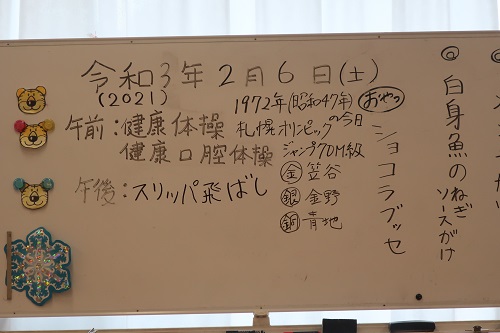 令和3年2月6日(土)
(2021)
午前：健康体操
健康口腔体操
午後：スリッパ飛ばし
1972年(昭和47年)
札幌オリンピックの今日
ジャンプ70M級
金 笠谷
銀 金野
銅 青地
おやつ
ショコラブッセ
◎白身魚のねぎ
ソースがけ